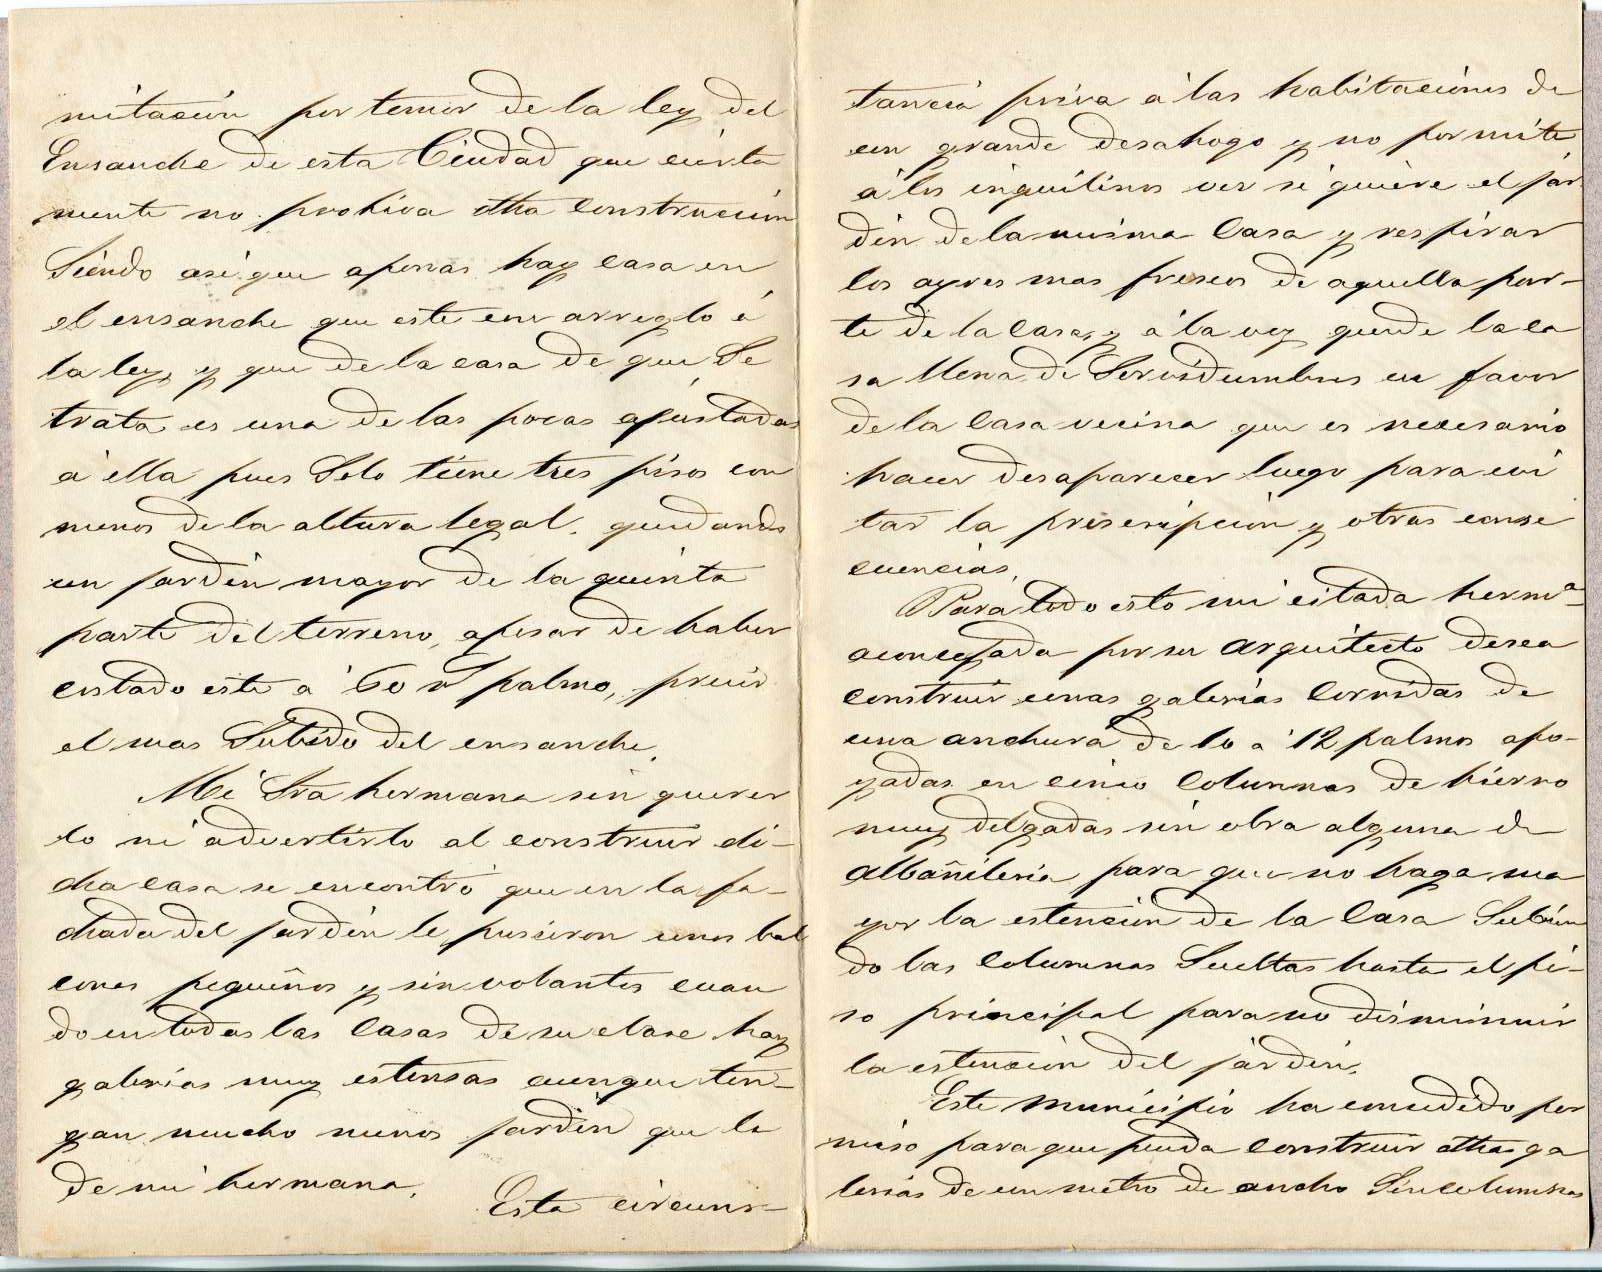 mitación por temor de la ley del
Ensanche de esta Ciudad que cierta
mente no prohiva dha construcción
Siendo asi que apenas hay casa en
el ensanche que este con arreglo á
la ley, y que de la casa de que Se
trata es una de las pocas ajustadas
á ella pues Solo tiene tres pisos con
menos de la altura legal, quedando
un jardin mayor de la quinta
parte del terreno, apesar de haber
costado este a 60 rs palmo, precio
el mas Subido del ensanche.
Mi Sra hermana sin querer
lo ni advertirlo al construir di-
cha casa se encontró que en la fa-
chada del jardin le pusieron unos bal
cones pequeños y sin volantes cuan
do en todas las casas de su clase hay
galerias muy estensas aunque ten-
gan mucho menos jardin que la
de mi hermana.
Esta circuns-
tancia priva á las habitaciones de
un grande desahogo y no permite
á los inquilinos ver si quiere el jar
din de la misma casa y respirar
los ayres mas frescos de aquella par-
te de la casa, y á la vez quede la ca
sa llena de Servidumbres en favor
de la casa vecina que es necesario
hacer desaparecer luego para evi
tar la prescripción y otras conse
cuencias.
Para todo esto mi citada hermª
aconsejada por su arquitecto desea
construir unas galerias corridas de
una anchura de 10 a 12 palmos apo-
yadas en cinco columnas de hierro
muy delgadas sin obra alguna de
albañileria para que no haga ma
yor la estención de la casa Subien
do las columnas Sueltas hasta el pi-
so principal para no disminuir
la estención del jardin.
Este municipio ha concedido per
miso para que pueda construir dhas ga
lerias de un metro de ancho Sin columnas